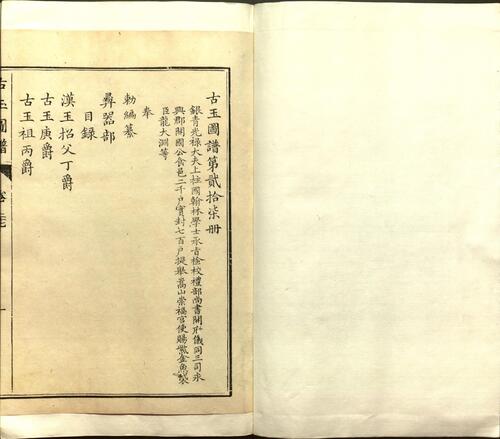 古玉圖譜第貳拾柒冊
銀青光祿大夫上柱國翰林學士承旨檢校禮部尚書開府儀同三司永
興郡開國公食邑二千戶實封七百戶提舉嵩山崇福宮使賜紫金魚袋
臣龍大淵等
奉
勅編纂
彝器部
目錄
漢玉招父丁爵
古玉庚爵
古玉祖丙爵
古玉圖譜